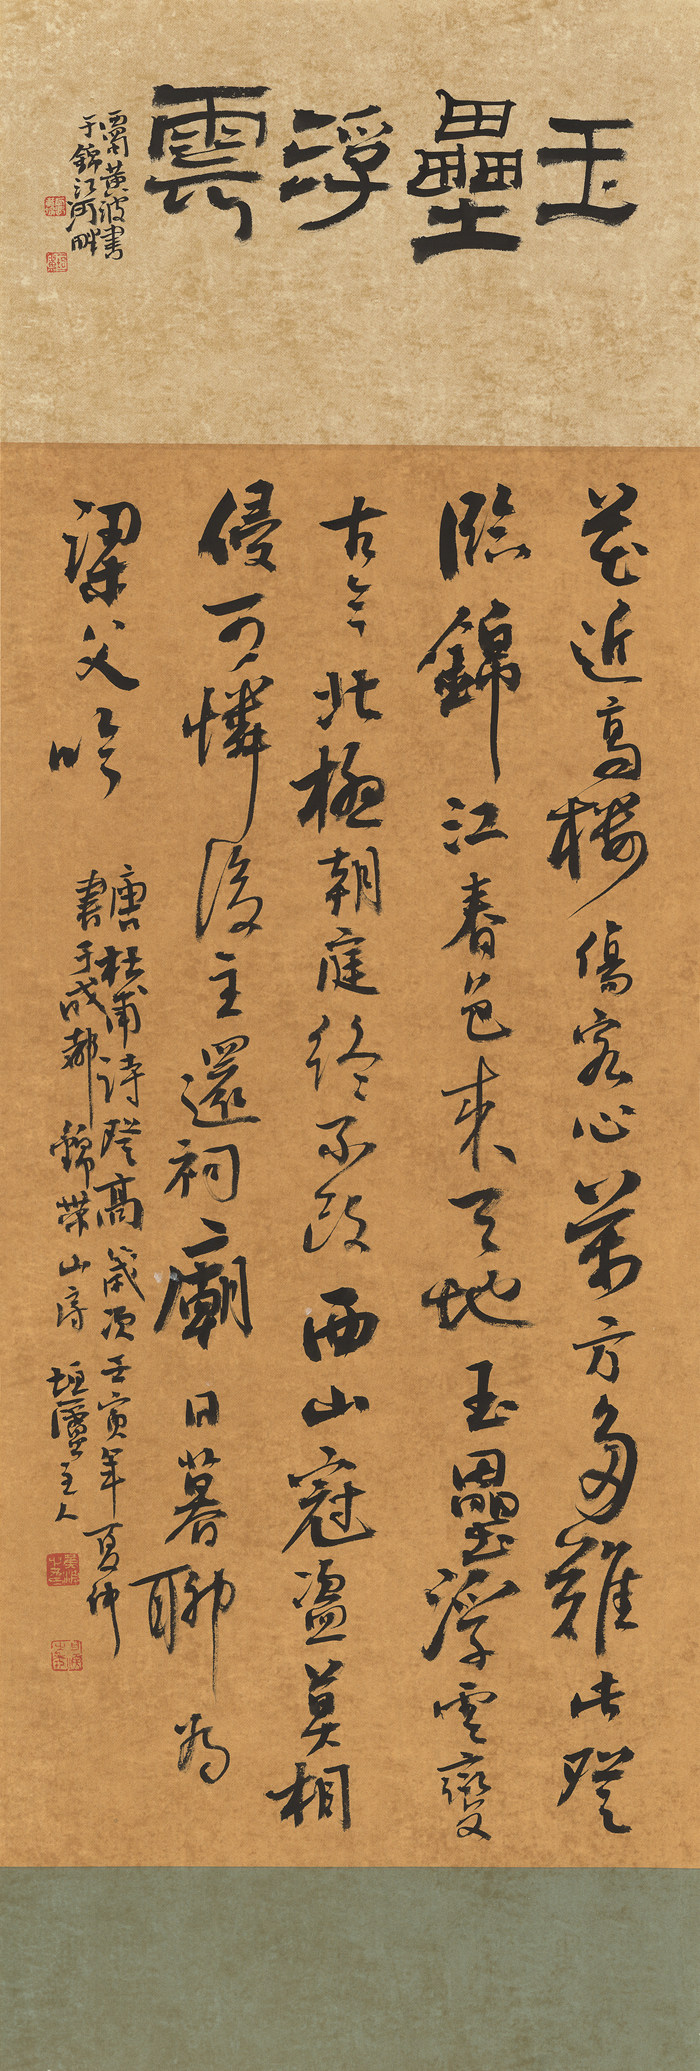 玉壘浮雲
西蜀黄波書
于錦江河畔
花近高楼傷客心萬方多難此登
臨錦江春色来天地玉壘浮雲變
古今北極朝庭終不改西山寇盗莫相
侵可憐後主還祠廟日暮聊為
梁父吟
唐杜甫詩登高歲次壬寅年夏仲
書于成都錦帶山房主人